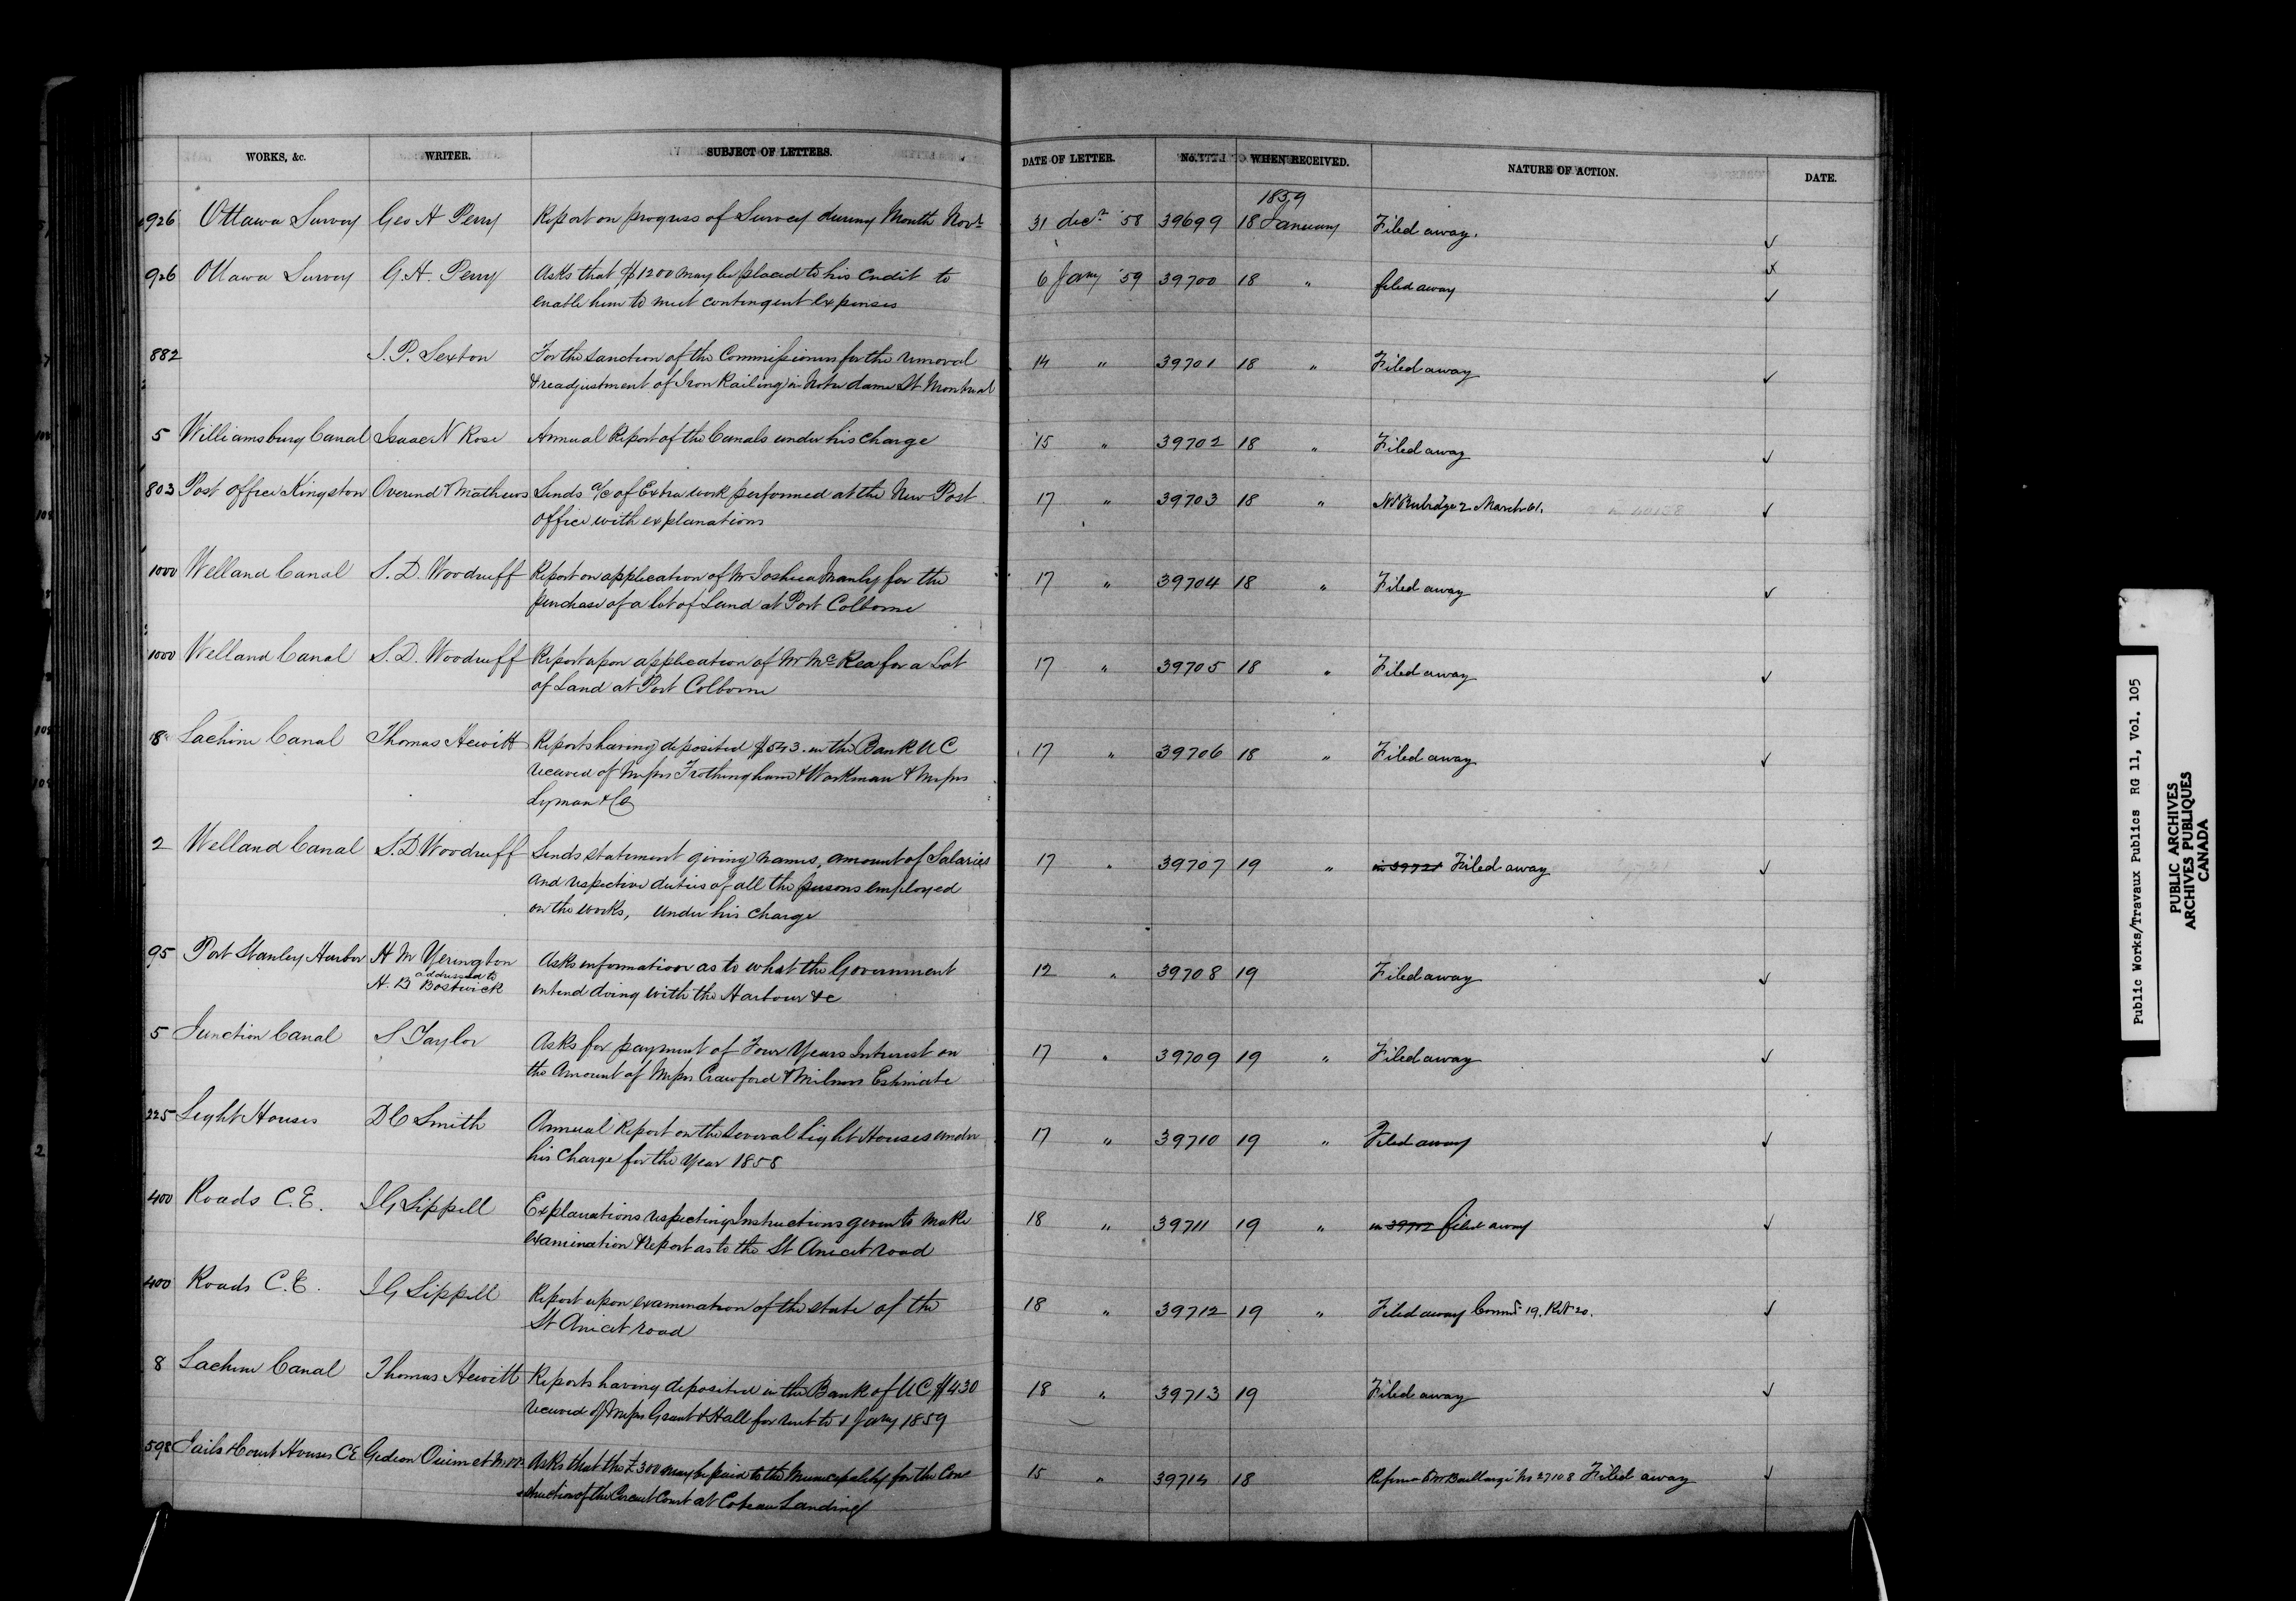 WORKS, &c. WRITER. SUBJECT OF LETTERS. DATE OF LETTER. No. WHEN RECEIVED. NATURE OF ACTION. DATE.
1859
926 Ottawa Survey Geo A Perry Report on progress of Survey during Month Novr 31 decr '58 39699 18 January Filed away.
926 Ottawa Survey G. A. Perry Asks that $1200 may be placed to his credit to 6 Jany '59 39700 18 " filed away
enable him to meet contingent expenses
882 J. P. Sexton For the sanction of the Commissioners for the removal 14 " 39701 18 " Filed away
& readjustment of Iron Railing in Notre dame St Montreal
5 Williamsburg Canal Isaac N Rose Annual Report of the Canals under his charge 15 " 39702 18 " Filed away
803 Post office Kingston Overend & Mathews Sends a/c of Extra work performed at the New Post 17 " 39703 18 " Rubidge 2 March 61.
office with explanations
1000 Welland Canal S. D. Woodruff Report on application of Mr Joshua Manly for the 17 " 39704 18 " Filed away
purchase of a lot of Land at Port Colborne
1000 Welland Canal S. D. Woodruff Report upon application of Mr McRea for a Lot 17 " 39705 18 " Filed away
of Land at Port Colborne
8 Lachine Canal Thomas Hewitt Reports having deposited $543. in the Bank U C 17 " 39706 18 " Filed away
received of Messrs Frothingham & Workman & Messrs
Lyman & Co
2 Welland Canal S. D Woodruff Sends statement giving names, amount of Salaries 17 " 39707 19 " in 39721 Filed away
and respective duties of all the persons employed
on the works, under his charge
95 Port Stanley Harbor H M Yerington Asks information as to what the Government 12 " 39708 19 Filed away
addressed to
H. B Bostwick intend doing with the Harbour &c
5 Junction Canal S Taylor Asks for payment of Four Years Interest on 17 " 39709 19 " Filed away
the Amount of Messrs Crawford & Milners Estimate
225 Light Houses D C Smith Annual Report on the several Light Houses under 17 " 39710 19 " Filed away
his Charge for the Year 1858
400 Roads C. E. J G Sippell Explanations respecting Instructions given to make 18 " 39711 19 " in 39712 filed away
examination & report as to the St Anicet road
400 Roads C. E. J G Sippell Report upon examination of the state of the 18 " 39712 19 " Filed away Comrs 19. Ret 20.
St Anicet road
8 Lachine Canal Thomas Hewitt Reports having deposited in the Bank of U C $430 18 " 39713 19 Filed away
received of Messrs Grant & Hall for rent to 1 Jany 1859
598 Jails & Court Houses C E Gedeon Ouimet M.P.P. Asks that the £300 may be paid to the Municipality for the Con 15 " 39714 18 Baillairgé No 27108 Filed away
struction of the Circuit Court at Coteau Landing
Public Works/Travaux Publics RG 11, Vol. 105
PUBLIC ARCHIVES
ARCHIVES PUBLIQUES
CANADA